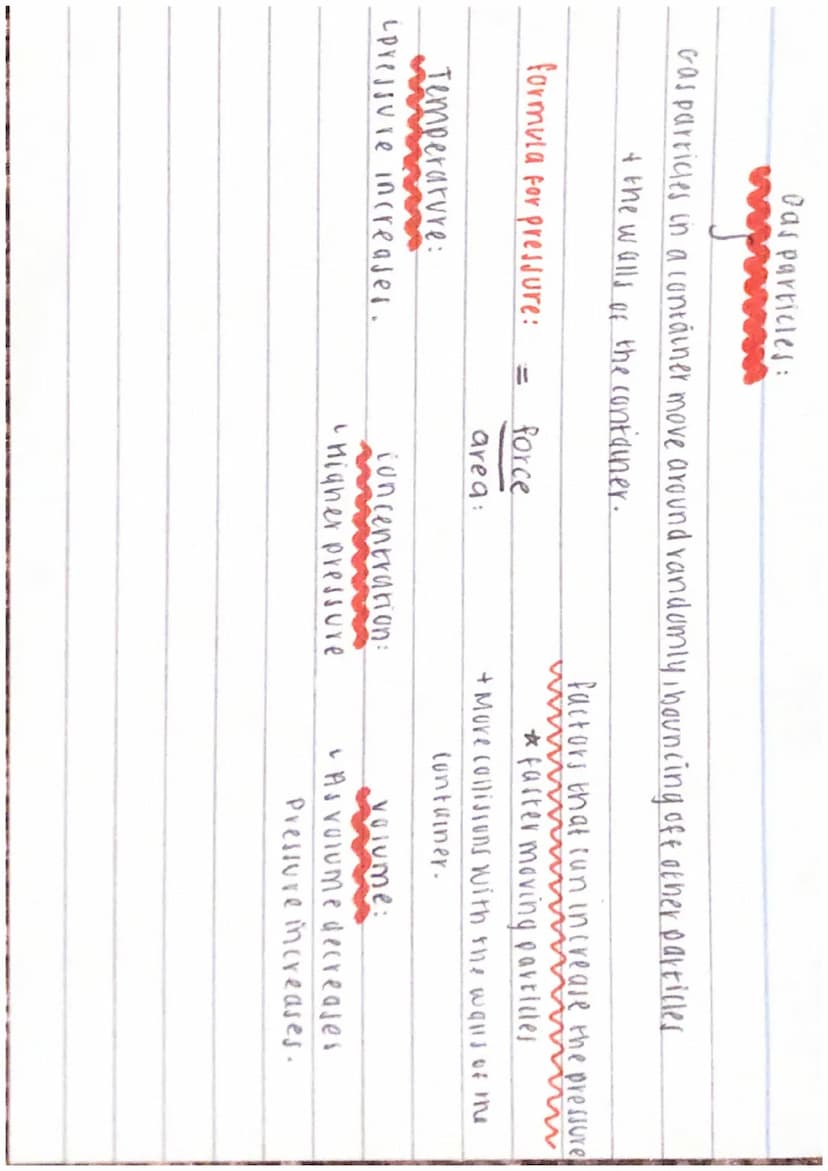 Gas particles:
Gas particles in a container move around randomly, bouncing off other particles
+ the walls of the container.
formula for pressure: = force
area:
factors that can increase the pressure
* faster moving particles
+ More collisions with the walls of the
container.
Temperature:
↳ pressure increases.
concentration:
↳ Higher pressure
volume:
↳ As volume decreases
pressure increases.